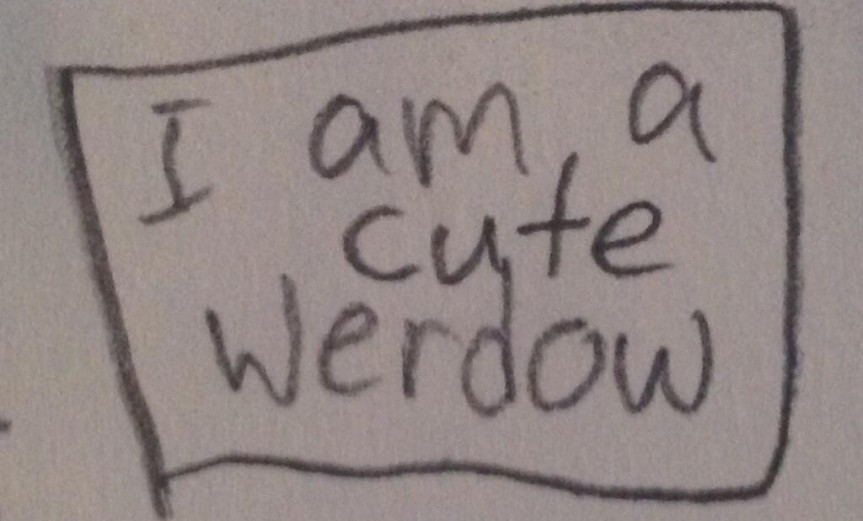 I am a
cute
Werdow